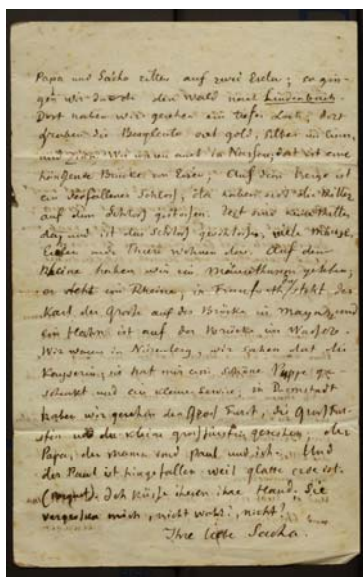 Papa und Sacha ritten auf zwei Eseln; so gin-
gen wir durch den Wald nach Lindenbach.
Dort haben wir gesehen ein tiefes Loch, dort
graben die Bergleute Gold, Silber
und Zink. Wir waren auch in Nassau, dort ist eine
hängende Brücke von Eisen; Auf dem Berge ist
ein verfallener Schloss, da haben sich die Ritter
auf dem Schloss gestossen. Jezt sind keine Ritter
da, und ist das Schloss geschlossen, viele Mäuse,
und Thiere wohnen da. Auf dem
Rheine haben wir ein Mäusethurm gesehen,
er steht am Rheine, in Frankfurth steht der
Karl der Grosse auf der Brücke in Maynz, und
ein Hahn ist auf der Brücke im Wasser.
Wir waren in Nürenberg, wir sahen dort die
Kayserin, sie hat mir eine schöne Puppe ge-
schenkt und ein kleine Servic, in Darmstadt
haben wir gesehen den Gross Fürst, die Grossfür-
stin und die kleine grossfürstin gesehen, der
Papa, der mama und paul und ich. Und
der Paul ist hingefallen weil glatte ist.
Ich küsse ihnen ihre Hand, Sie
vergessen mich, nicht wahr?, nicht?
Ihre liebe Sacha.